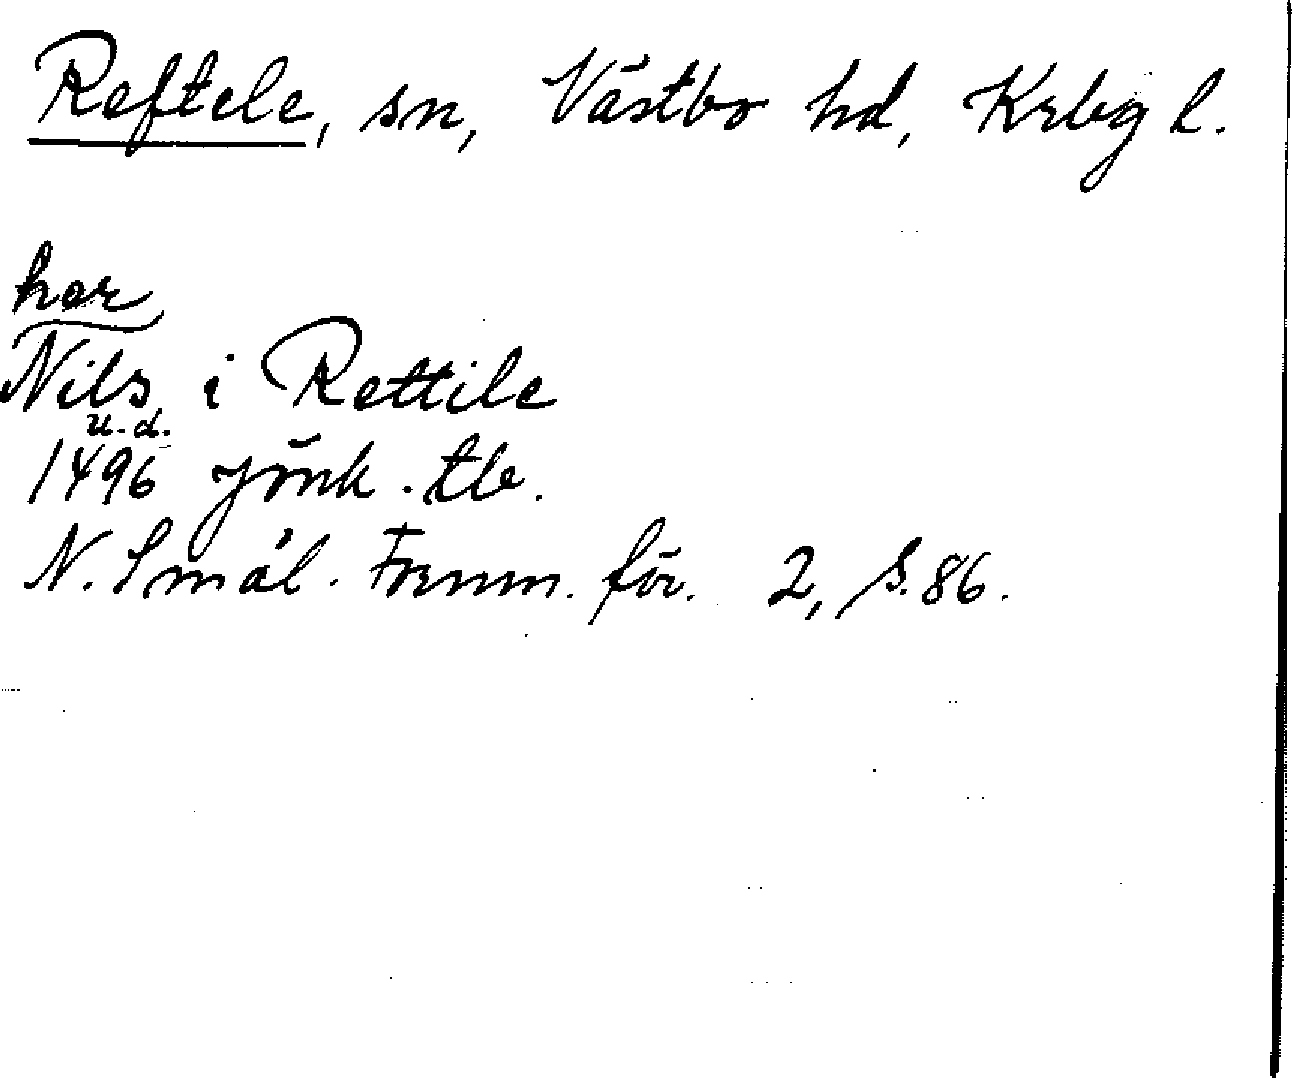 Reftele, sn, Västbo hd, Krbg l.
her
Nils i Rettile
u.d.
1496 Jönk. tb.
N. Smål. Fornm. för. 2, S. 86.